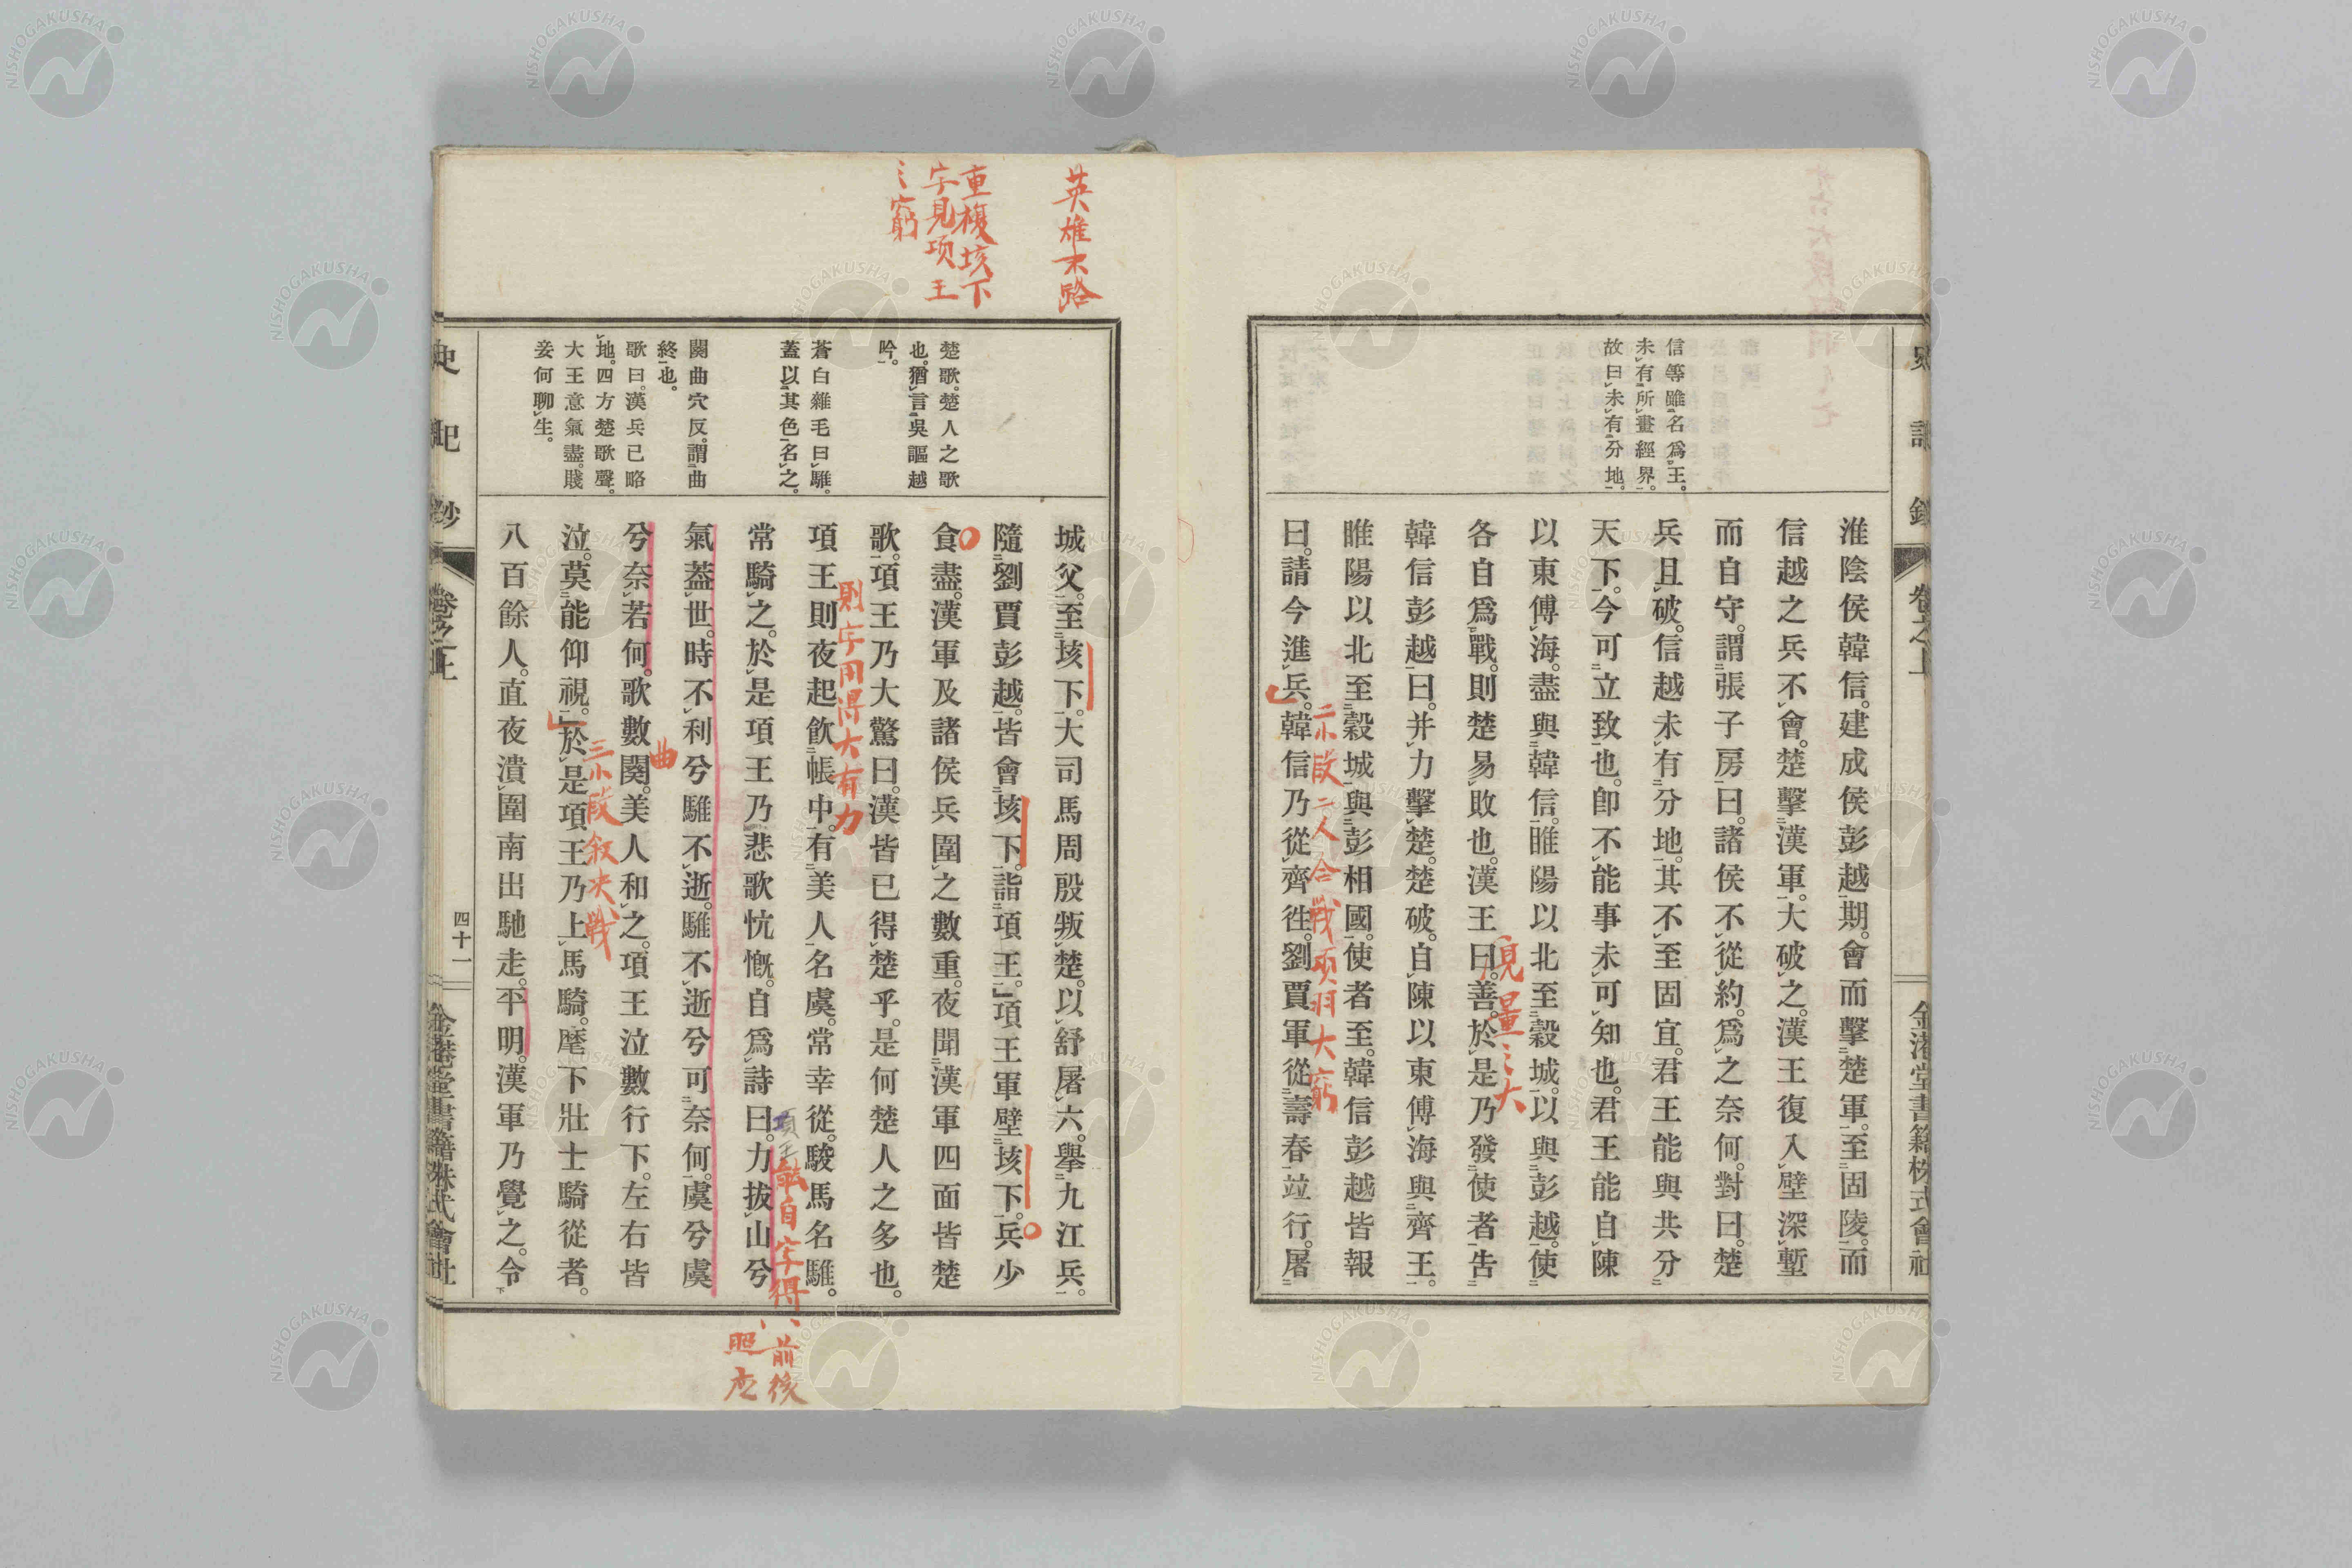 史記鈔
卷之上
金港堂書籍株式會社
信等雖名爲王。
未有所畫經界。
故曰未有分地。
淮陰侯韓信。建成侯彭越期。會而擊楚軍。至固陵。而
信越之兵不會。楚擊漢軍。大破之。漢王復入壁深塹
而自守。謂張子房曰。諸侯不從約。爲之奈何。對曰。楚
兵且破。信越未有分地。其不至固宜。君王能與共分
天下。今可立致也。卽不能事未可知也。君王能自陳
以東傅海。盡與韓信。睢陽以北至穀城。以與彭越。使
各自爲戰。則楚易敗也。漢王曰。善。於是乃發使者告
韓信彭越曰。并力擊楚。楚破。自陳以東傅海與齊王。
睢陽以北至穀城與彭相國。使者至。韓信彭越皆報
曰。請今進兵。韓信乃從齊徃。劉賈軍從壽春竝行。屠
量之大
二小段二人合戰项羽大窮
英雄末路
重複垓下
字見项王
之窮
楚歌。楚人之歌
也。猶言吳謳越
吟。
蒼白雜毛曰騅。
蓋以其色名之。
闋曲穴反。謂曲
終也。
歌曰。漢兵已略
地。四方楚歌聲。
大王意氣盡。賤
妾何聊生。
城父。至垓下。大司馬周殷叛楚。以舒屠六。擧九江兵。
隨劉賈彭越。皆會垓下。詣項王。」項王軍壁垓下。兵少
食盡。漢軍及諸侯兵圍之數重。夜聞漢軍四面皆楚
歌。項王乃大驚曰。漢皆已得楚乎。是何楚人之多也。
項王則夜起飮帳中。有美人名虞。常幸從。駿馬名騅。
常騎之。於是項王乃悲歌忼慨。自爲詩曰。力拔山兮
氣蓋世。時不利兮騅不逝。騅不逝兮可奈何。虞兮虞
兮奈若何。歌數闋。美人和之。項王泣數行下。左右皆
泣。莫能仰視。」於是項王乃上馬騎。麾下壯士騎從者。
八百餘人。直夜潰圍南出馳走。平明。漢軍乃覺之。令
則字用得大有力
項王
自字得
前後
照应
曲
三小段叙决戰
史記鈔
卷之上
四十一
金港堂書籍株式會社
NISHOGAKUSHA